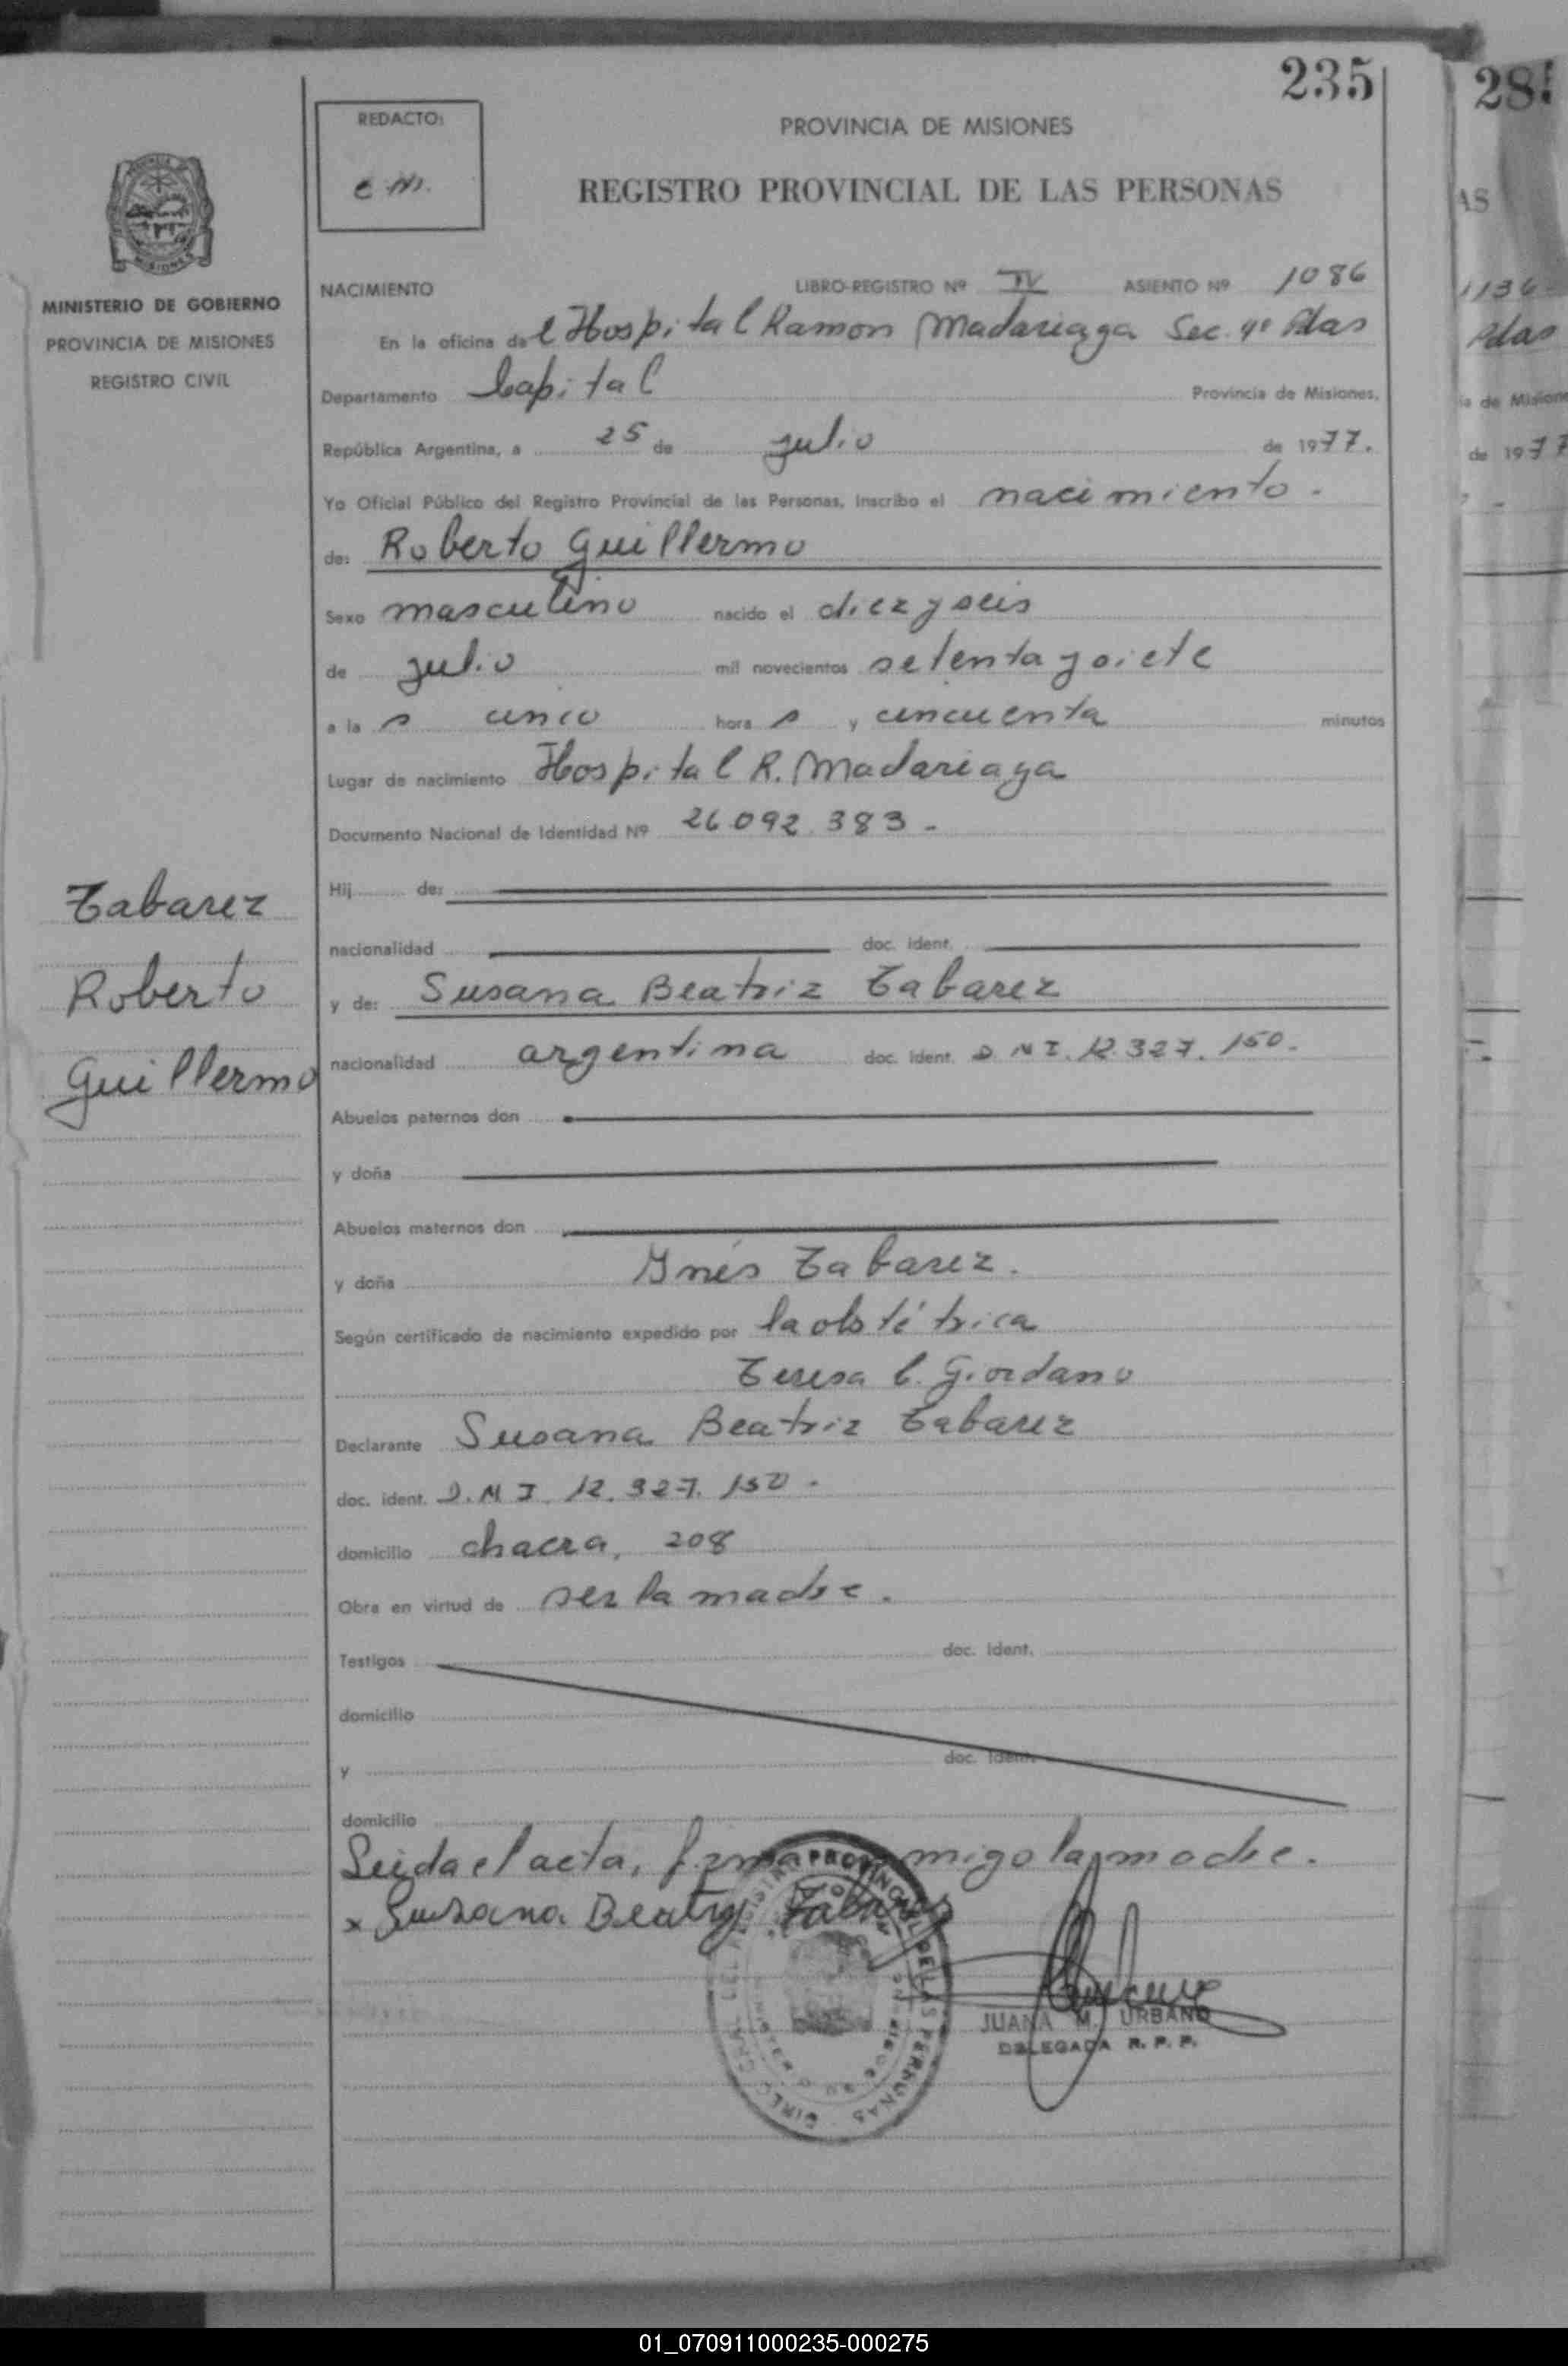 235
28
REDACTO:
e m.
PROVINCIA DE MISIONES
REGISTRO PROVINCIAL DE LAS PERSONAS
AS
MISIONES
MINISTERIO DE GOBIERNO
PROVINCIA DE MISIONES
REGISTRO CIVIL
NACIMIENTO LIBRO-REGISTRO Nº IV ASIENTO Nº 1086
1136
En la oficina del Hospital Ramon Madariaga Sec. 4ª Pdas
Pdas
Departamento Capital Provincia de Misiones,
ia de Misione
República Argentina, a 25 de julio de 1977.
de 1977
Yo Oficial Público del Registro Provincial de las Personas, Inscribo el nacimiento.
de: Roberto Guillermo
Sexo masculino nacido el diez y seis
de julio mil novecientos setenta y siete
a la s cinco hora s y cincuenta minutos
Lugar de nacimiento Hospital R. Madariaga
Documento Nacional de Identidad Nº 26.092.383-
Hij de:
nacionalidad doc. ident.
y de: Susana Beatriz Tabarez
nacionalidad argentina doc. ident. D.N.I. 12.327.150-
Abuelos paternos don
y doña
Abuelos maternos don
y doña Ynés Tabarez.
Según certificado de nacimiento expedido por la obstétrica
Teresa C. Giordano
Declarante Susana Beatriz Tabarez
doc. ident. D.N.I. 12.327.150.
domicilio chacra, 208
Obra en virtud de ser la madre.
Testigos doc. ident.
domicilio
y doc. ident.
domicilio
Leida el acta, firma conmigo la madre.
x Susana Beatriz Tabarez
Tabarez
Roberto
Guillermo
JUANA M. URBANO
DELEGADA R. P. P.
01_070911000235-000275